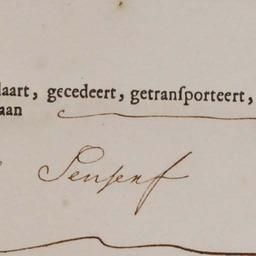 laart, gecedeert, getranſporteert,
aan
Senserf